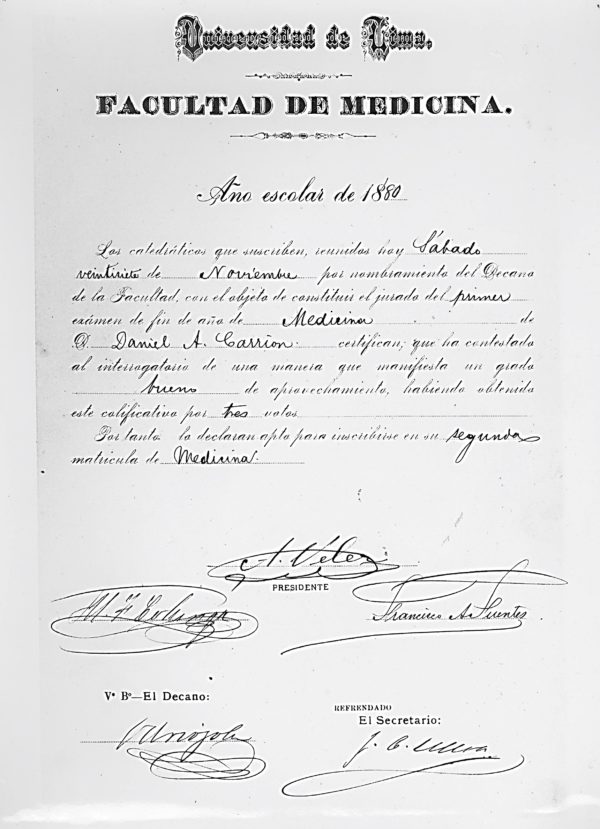 Universidad de Lima.
FACULTAD DE MEDICINA.
Año escolar de 1880
Los catedráticos que suscriben, reunidos hoy Sábado
veintisiete de Noviembre por nombramiento del Decano
de la Facultad, con el objeto de constituir el jurado del primer
exámen de fin de año de Medicina de
D. Daniel A. Carrion certifican; que ha contestado
al interrogatorio de una manera que manifiesta un grado
bueno de aprovechamiento, habiendo obtenido
este calificativo por tres votos
Por tanto lo declaran apto para inscribirse en su segunda
matricula de Medicina.
A. Velez
PRESIDENTE
Francisco A. Fuentes
Vº Bº—El Decano:
REFRENDADO
El Secretario:
J. C.